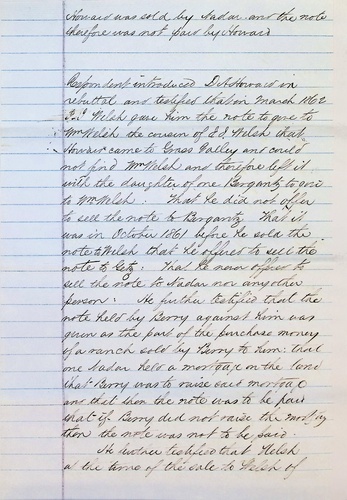 Howard was sold by Nadar and the note
therefore was not paid by Howard
Respondent introduced D A Howard in
rebuttal and testified that on March 1862
Ed Welsh gave him the note to give to
Wm Welsh the cousin of Ed Welsh that
Howard came to Grass Valley and could
not find Wm Welsh and therefore left it
with the daughter of one Bergantz to give
to Wm Welsh. That he did not offer
to sell the note to Bergantz That it
was in October 1861 before he sold the
note to Welsh that he offered to sell the
note to Getz: that he never offered to
sell the note to Nadar nor any other
person: He further testified that the
note held by Berry against him was
given as the part of the purchase money
of a ranch sold by Berry to him: that
one Nadar held a mortgage on the land
that Berry was to raise said mortgage
and that then the note was to be paid
that if Berry did not raise the mortgage
then the note was not to be paid.
He further testified that Welsh
at the time of the sale to Welsh of